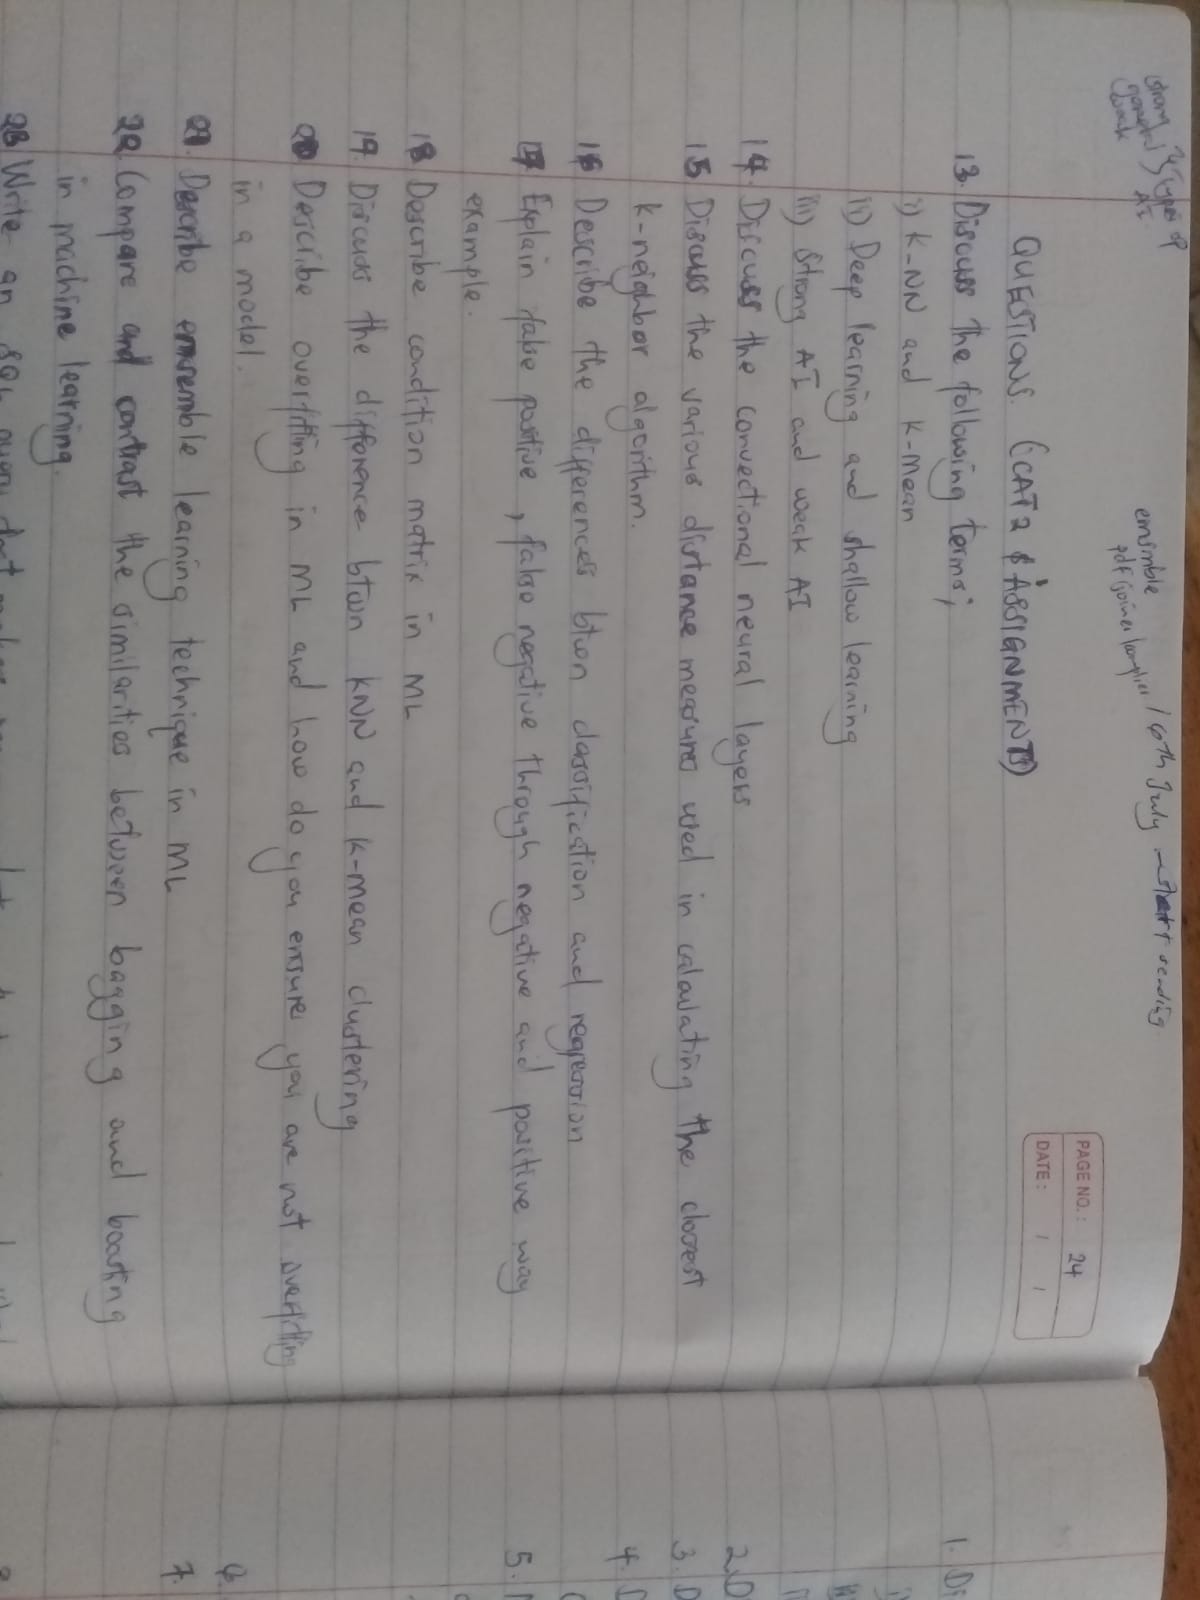 strong } types of
general } AI
weak
emsmble / 16th July - start sending
pdf joiner/complier
PAGE NO.: 24
DATE: / /
QUESTIONS. (CAT 2 & ASSIGNMENTS)
13. Discuss the following terms;
i) K-NN and K-Mean
ii) Deep learning and shallow learning
iii) Strong AI and weak AI
14. Discuss the convectional neural layers
15 Discuss the various distance measures used in calculating the closest
k-neighbor algorithm.
16 Describe the differences btwn classification and regression
17 Explain false positive, false negative through negative and positive way
example.
18 Describe condition matrix in ML
19. Discuss the difference btwn KNN and K-mean clustering
20 Describe overfitting in ML and how do you ensure you are not overfitting
in a model.
21. Describe emsemble learning technique in ML
22. Compare and contrast the similarities between bagging and boosting
in machine learning.
23 Write an SQL query that
1. Di
i)
2. D
3. D
4. D
5.
6.
7.